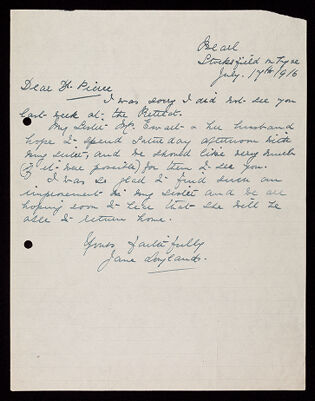 Stocksfield on Tyne
July. 17th 1916
Dear Dr. Pierce
I was sorry I did not see you
last week at the Retreat.
My sister Mrs. Ewart & her husband
hope to spend Saturday afternoon with
my sister, and we should like very much
(if it was possible) for them to see you.
I was so glad to find such an
improvement in my sister and we are
hoping soon to hear that she will be
able to return home.
Yours faithfully
Jane